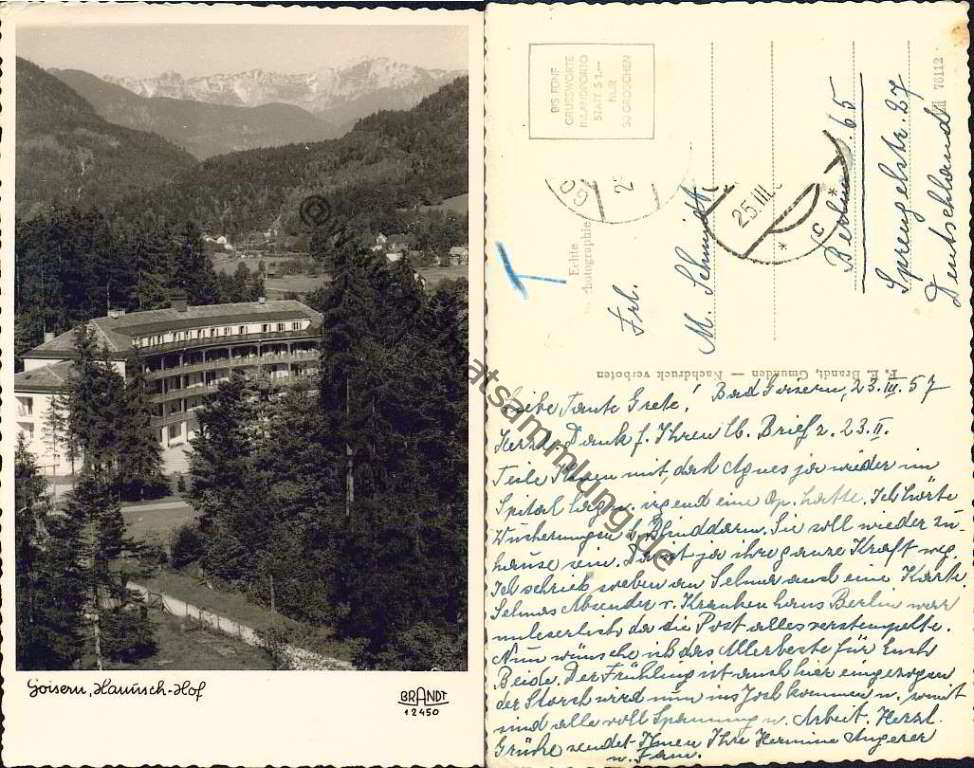 Goisern, Hanusch-Hof
BRANDT
12450
BIS FÜNF
GRUSSWORTE
INLANDPORTO
STATT S 1.—
NUR
30 GROSCHEN
Echte
Photographie
T
25.III
Frl.
M. Schmidt
Berlin 65
Sprengelstr. 27
Deutschland
76112
F. E. Brandt, Gmunden — Nachdruck verboten
Liebe Tante Grete! Bad Goisern, 23.III.57
Herzl. Dank f. Ihren lb. Brief v. 23.II.
Teile Ihnen mit, daß Agnes ja wieder im
Spital lag u. irgend eine Op. hatte. Ich hörte
Wucherungen b. Blinddarm. Sie soll wieder zu-
hause sein. Damit ja ihre ganze Kraft weg.
Ich schrieb soeben an Selma auch eine Karte.
Selmas Absender v. Krankenhaus Berlin war
unleserlich da die Post alles zerstempelte.
Nun wünsche ich das Allerbeste für Euch
Beide. Der Frühling ist auch hier eingezogen
der Storch wird nun ins Joch kommen u. somit
sind alle voll Spannung u. Arbeit. Herzl.
Grüße sendet Ihnen Ihre Hermine Angerer
u. Fam.